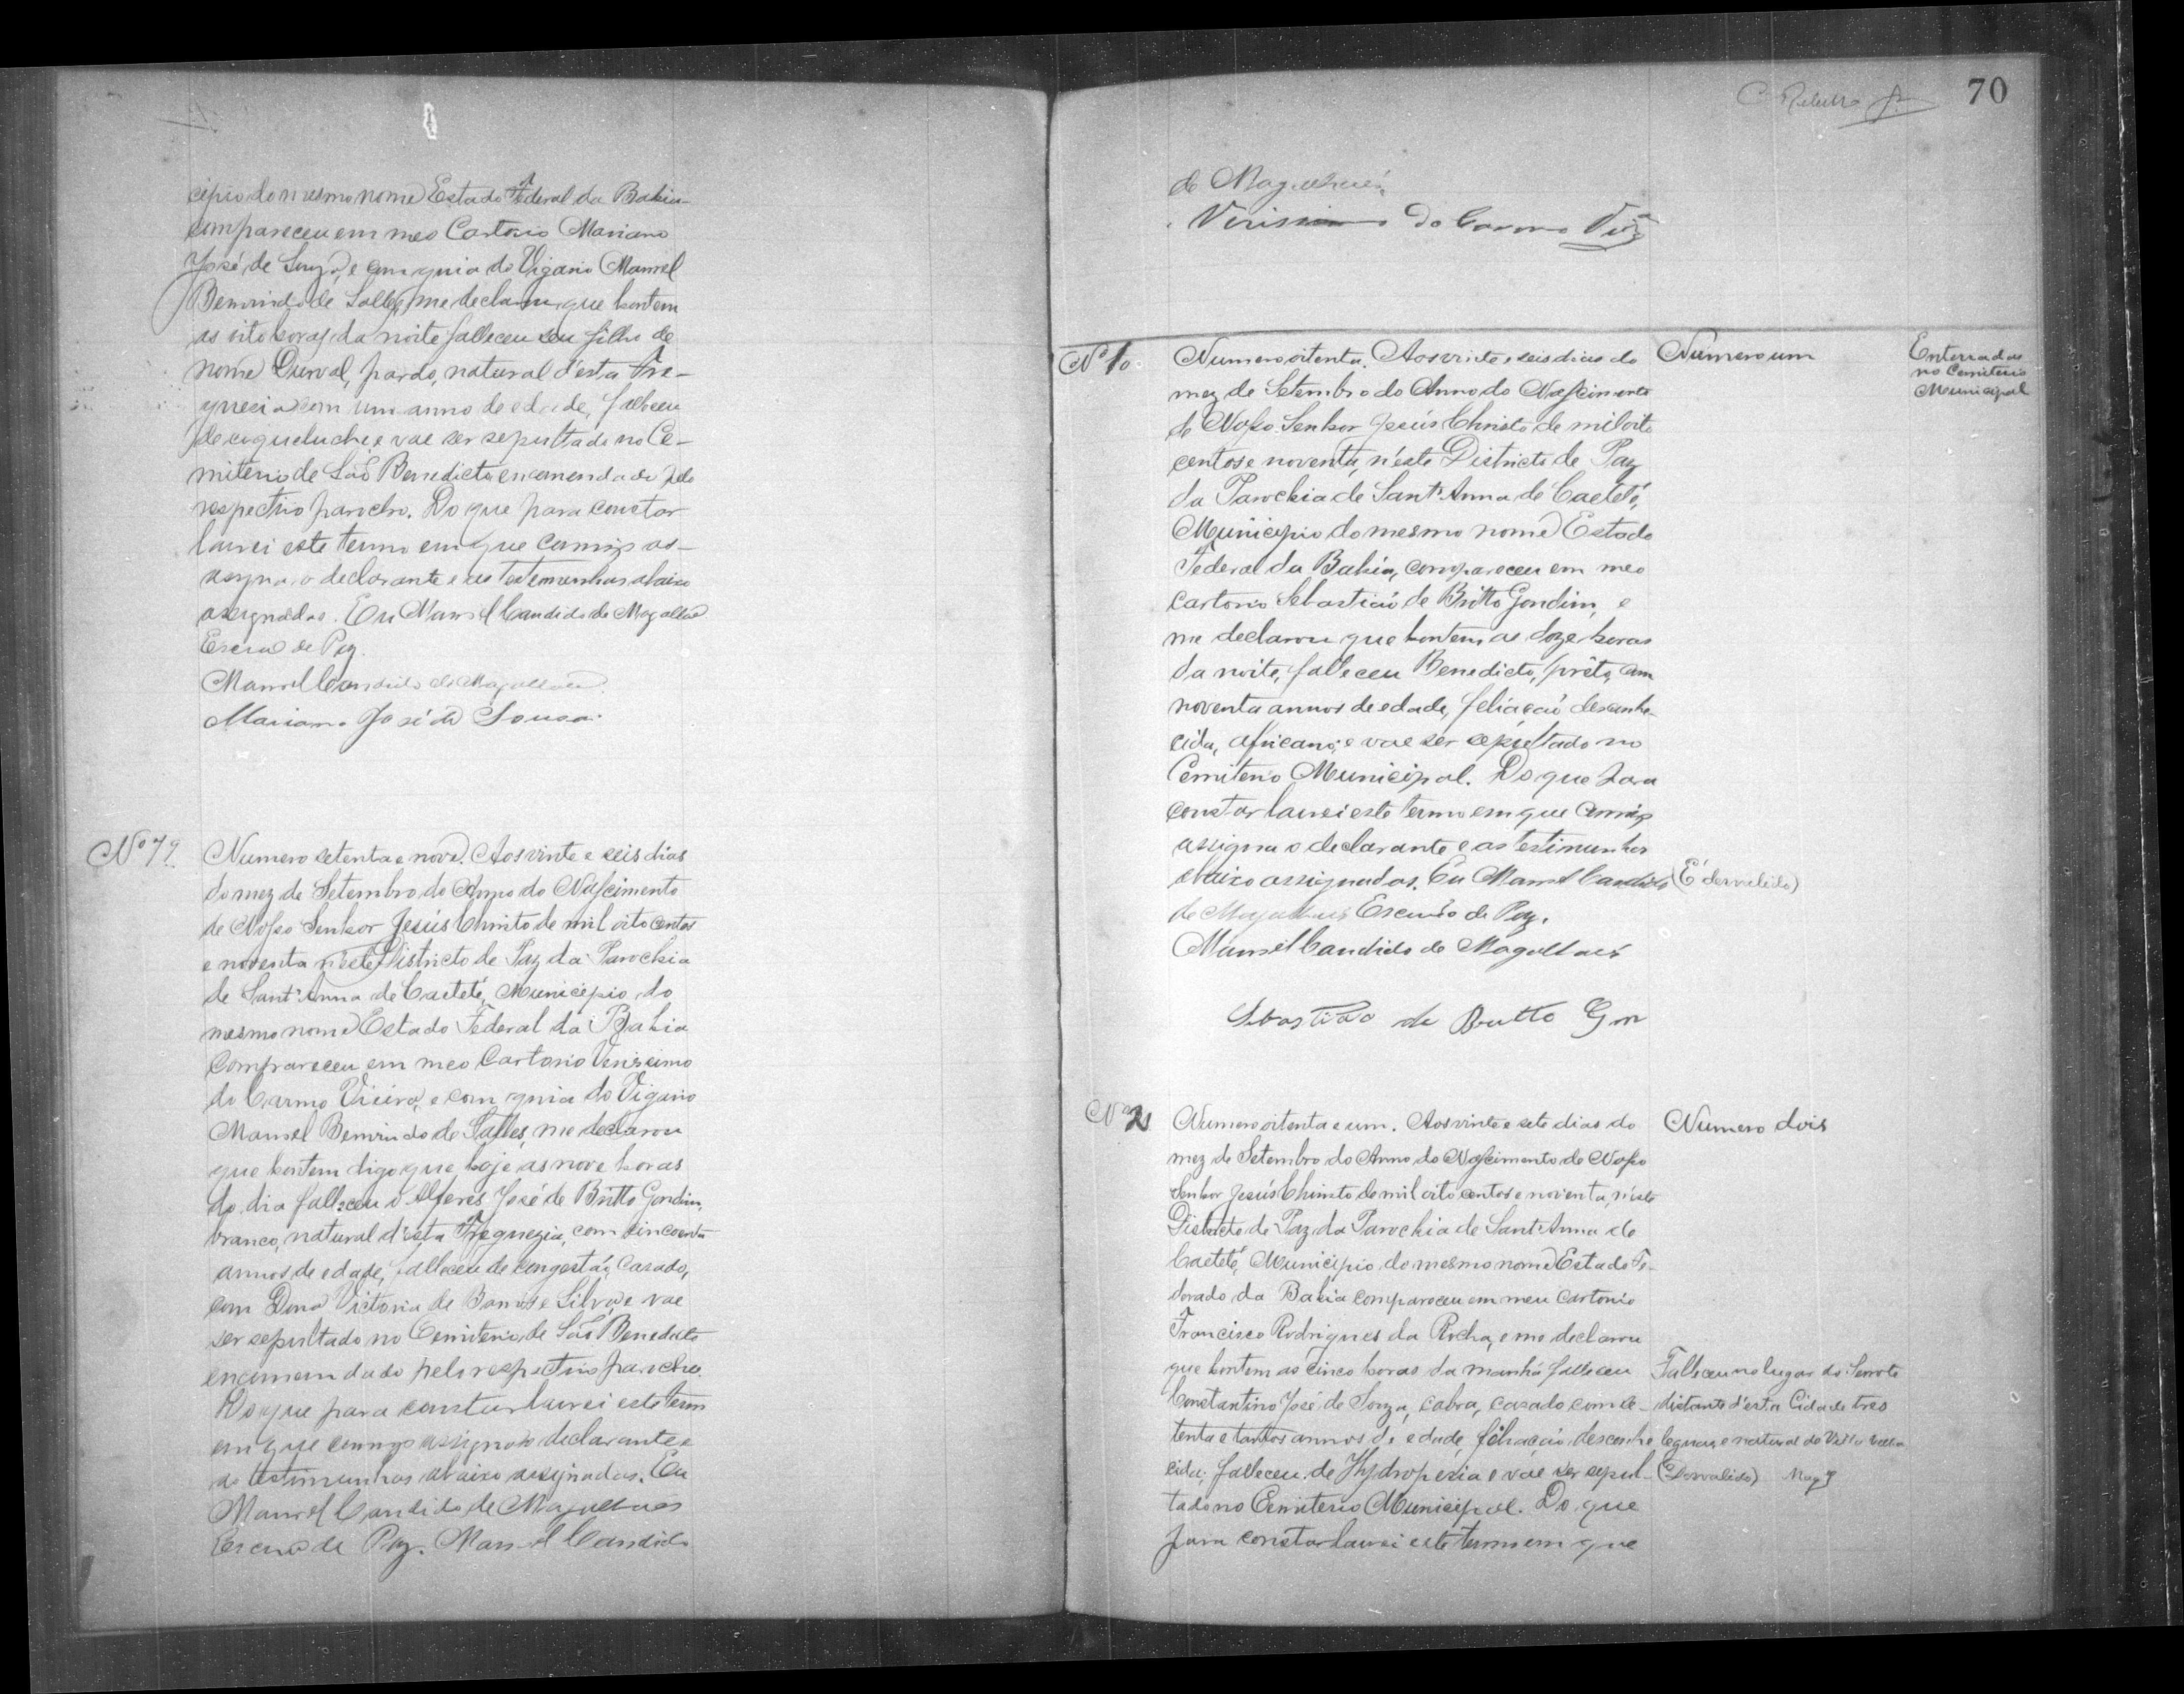 cipio do mesmo nome Estado Federal da Bahia
compareceu em meo Cartorio Mariano
José de Souza, e com guia do Vigario Manoel
Bemvindo de Salles, me declarou que hontem
as oito horas da noite falleceu seu filho de
nome Durval, pardo, natural d'esta Fre-
guezia com um anno de edade, falleceu
de coqueluche, e vae ser sepultado no Ce-
miterio de São Benedicto encomendado pelo
respectivo parocho. Do que para constar
lavrei este termo em que comigo as-
signa, o declarante e as testemunhas abaixo
assignadas. Eu Manoel Candido de Magalhães
Escrivão de Paz.
Manoel Candido de Magalhães
Mariano José de Sousa.
Nº 79.
Numero setenta e nove. Aos vinte e seis dias
do mez de Setembro do Anno do Nascimento
de Nosso Senhor Jesús Christo de mil oito centos
e noventa n'este Districto de Paz da Parochia
de Sant'Anna de Caeteté, Municipio do
mesmo nome Estado Federal da Bahia
compareceu em meo Cartorio Verissimo
do Carmo Vieira, e com guia do Vigario
Manoel Bemvindo de Salles, me declarou
que hontem digo que hoje as nove horas
do dia falleceu o Alferes José de Britto Gondim,
branco, natural d'esta Freguezia, com cincoenta
annos de edade, falleceu de congestão, casado,
com Dona Victoria de Barros e Silva, e vae
ser sepultado no Cemiterio de São Benedicto
encomendado pelo respectivo parocho.
Do que para constar lavrei este termo
em que comigo assigna o declarante e
as testimunhas abaixo assignadas. Eu
Manoel Candido de Magalhães
Escrivão de Paz. Manoel Candido
70
de Magalhães
Verissimo do Carmo
Nº 1º
Numero oitenta. Aos vinte e seis dias do
mez de Setembro do Anno do Nascimento
de Nosso Senhor Jesús Christo de mil oito
centos e noventa, n'este Districto de Paz
da Parochia de Sant'Anna de Caeteté,
Municipio do mesmo nome Estado
Federal da Bahia, compareceu em meo
Cartorio Sebastião de Britto Gondim, e
me declarou que hontem as doze horas
da noite, falleceu Benedicto, prêto, com
noventa annos de edade, filiação desconhe-
cida, africano, e vae ser sepultado no
Cemiterio Municipal. Do que para
constar lavrei este termo em que comigo
assigna o declarante e as testimunhas
abaixo assignadas. Eu Manoel Candido
de Magalhães Escrivão de Paz.
Manoel Candido de Magalhães
Sebastião de Britto Gon
Numero um
Enterrados
no Cemiterio
Municipal
(É desvalido)
Nº 2
Numero oitenta e um. Aos vinte e sete dias do
mez de Setembro do Anno do Nascimento de Nosso
Senhor Jesús Christo de mil oito centos e noventa, n'este
Districto de Paz da Parochia de Sant'Anna de
Caeteté, Municipio do mesmo nome Estado Fe-
derado da Bahia compareceu em meu Cartorio
Francisco Rodrigues da Rocha, e me declarou
que hontem as cinco horas da manhã falleceu
Constantino José de Souza, cabra, casado com se-
tenta e tantos annos de edade, filiação desconhe
cida, falleceu de Hydropezia e vae ser sepul-
tado no Cemiterio Municipal. Do que
para constar lavrei este termo em que
Numero dois
Falleceu no lugar do Serrote
distante d'esta Cidade tres
leguas, e natural de Villa Velha
(Desvalido) Mag